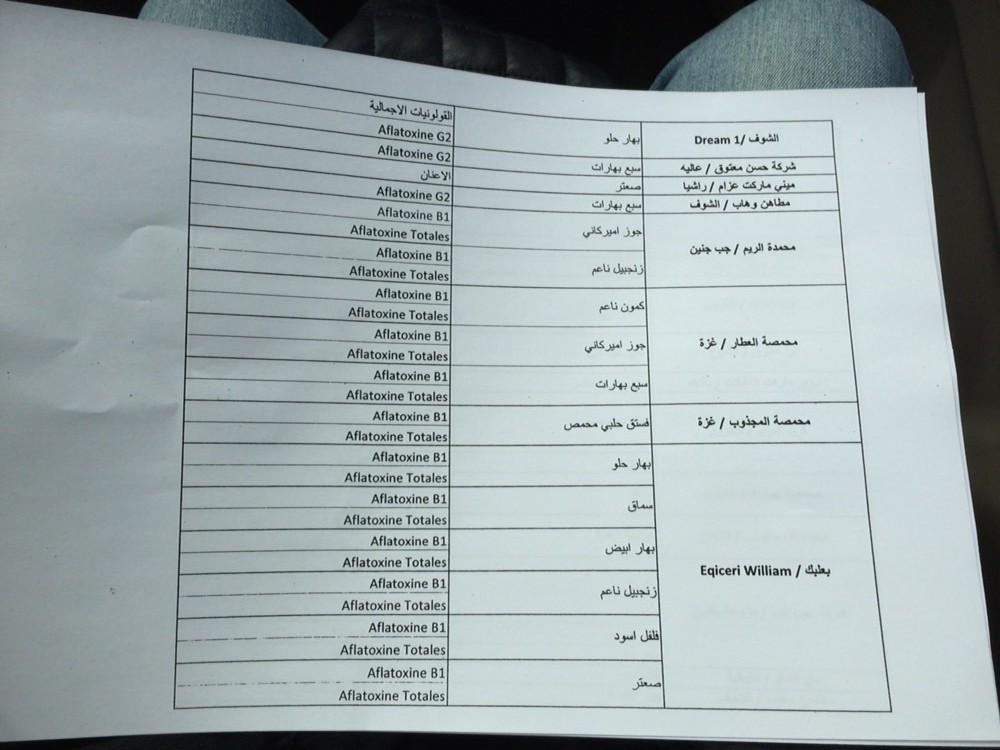 الشوف /Dream 1
بهار حلو
القولونيات الاجمالية
Aflatoxine G2
Aflatoxine G2
شركة حسن معتوق / عاليه
سبع بهارات
الاعنان
ميني ماركت عزام / راشيا
صعتر
Aflatoxine G2
مطاهن وهاب / الشوف
سبع بهارات
محمدة الريم / جب جنين
جوز اميركاني
Aflatoxine B1
Aflatoxine Totales
زنجبيل ناعم
Aflatoxine B1
Aflatoxine Totales
محمصة العطار / غزة
كمون ناعم
Aflatoxine B1
Aflatoxine Totales
جوز اميركاني
Aflatoxine B1
Aflatoxine Totales
سبع بهارات
Aflatoxine B1
Aflatoxine Totales
محمصة المجذوب / غزة
فستق حلبي محمص
Aflatoxine B1
Aflatoxine Totales
بعلبك / Eqiceri William
بهار حلو
Aflatoxine B1
Aflatoxine Totales
سماق
Aflatoxine B1
Aflatoxine Totales
بهار ابيض
Aflatoxine B1
Aflatoxine Totales
زنجبيل ناعم
Aflatoxine B1
Aflatoxine Totales
فلفل اسود
Aflatoxine B1
Aflatoxine Totales
صعتر
Aflatoxine B1
Aflatoxine Totales